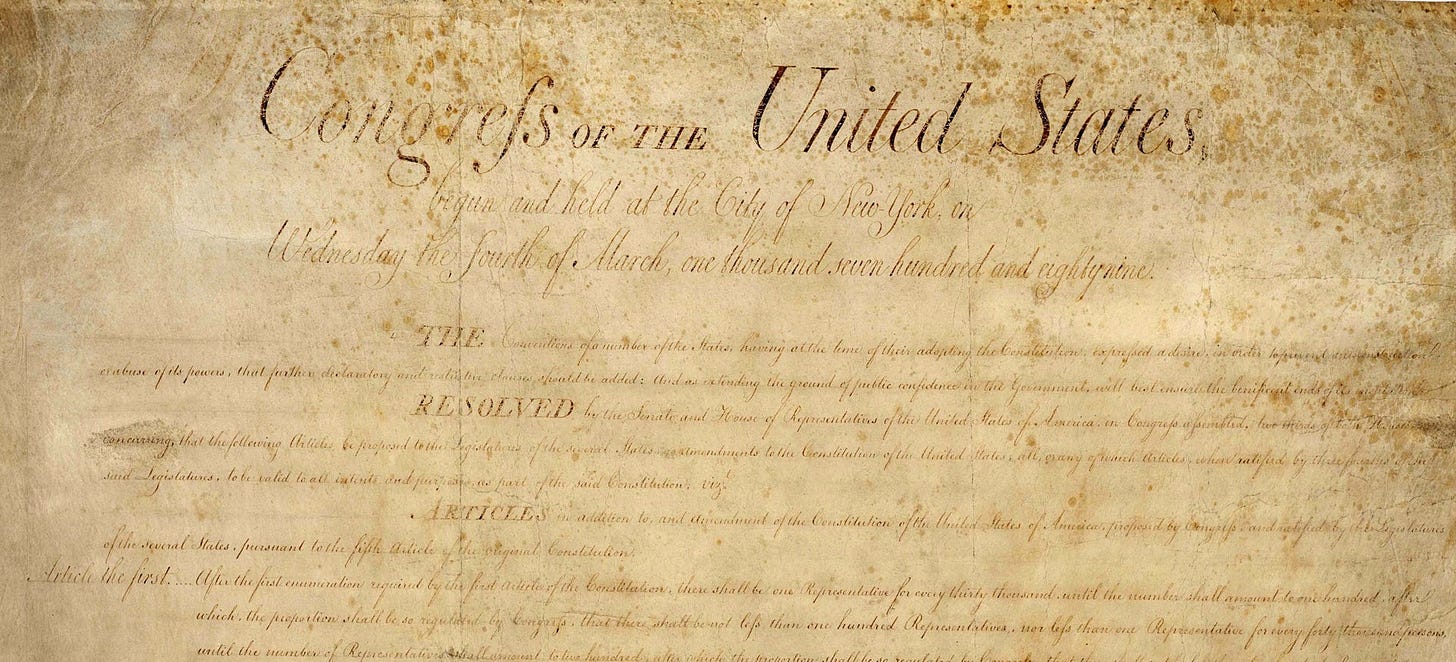 Congreſs OF THE United States,
begun and held at the City of New-York, on
Wednesday the fourth of March, one thousand seven hundred and eighty nine.
THE Conventions of a number of the States, having at the time of their adopting the Constitution, expressed a desire, in order to prevent misconstruction
or abuse of its powers, that further declaratory and restrictive clauses should be added: And as extending the ground of public confidence in the Government, will best ensure the beneficent ends of its
RESOLVED by the Senate and House of Representatives of the United States of America, in Congreſs aſsembled, two thirds of both Houses
concurring, that the following Articles be proposed to the Legislatures of the several States, as amendments to the Constitution of the United States, all, or any of which Articles, when ratified by three fourths of the
said Legislatures, to be valid to all intents and purposes, as part of the said Constitution; vizt
ARTICLES in addition to, and amendment of the Constitution of the United States of America, proposed by Congreſs and ratified by the Legislatures
of the several States, pursuant to the fifth Article of the original Constitution.
Article the first.... After the first enumeration required by the first article of the Constitution, there shall be one Representative for every thirty thousand, until the number shall amount to one hundred, after
which, the proportion shall be so regulated by Congreſs, that there shall be not leſs than one hundred Representatives, nor leſs than one Representative for every forty thousand persons,
until the number of Representatives shall amount to two hundred, after which the proportion shall be so regulated by Congreſs, that